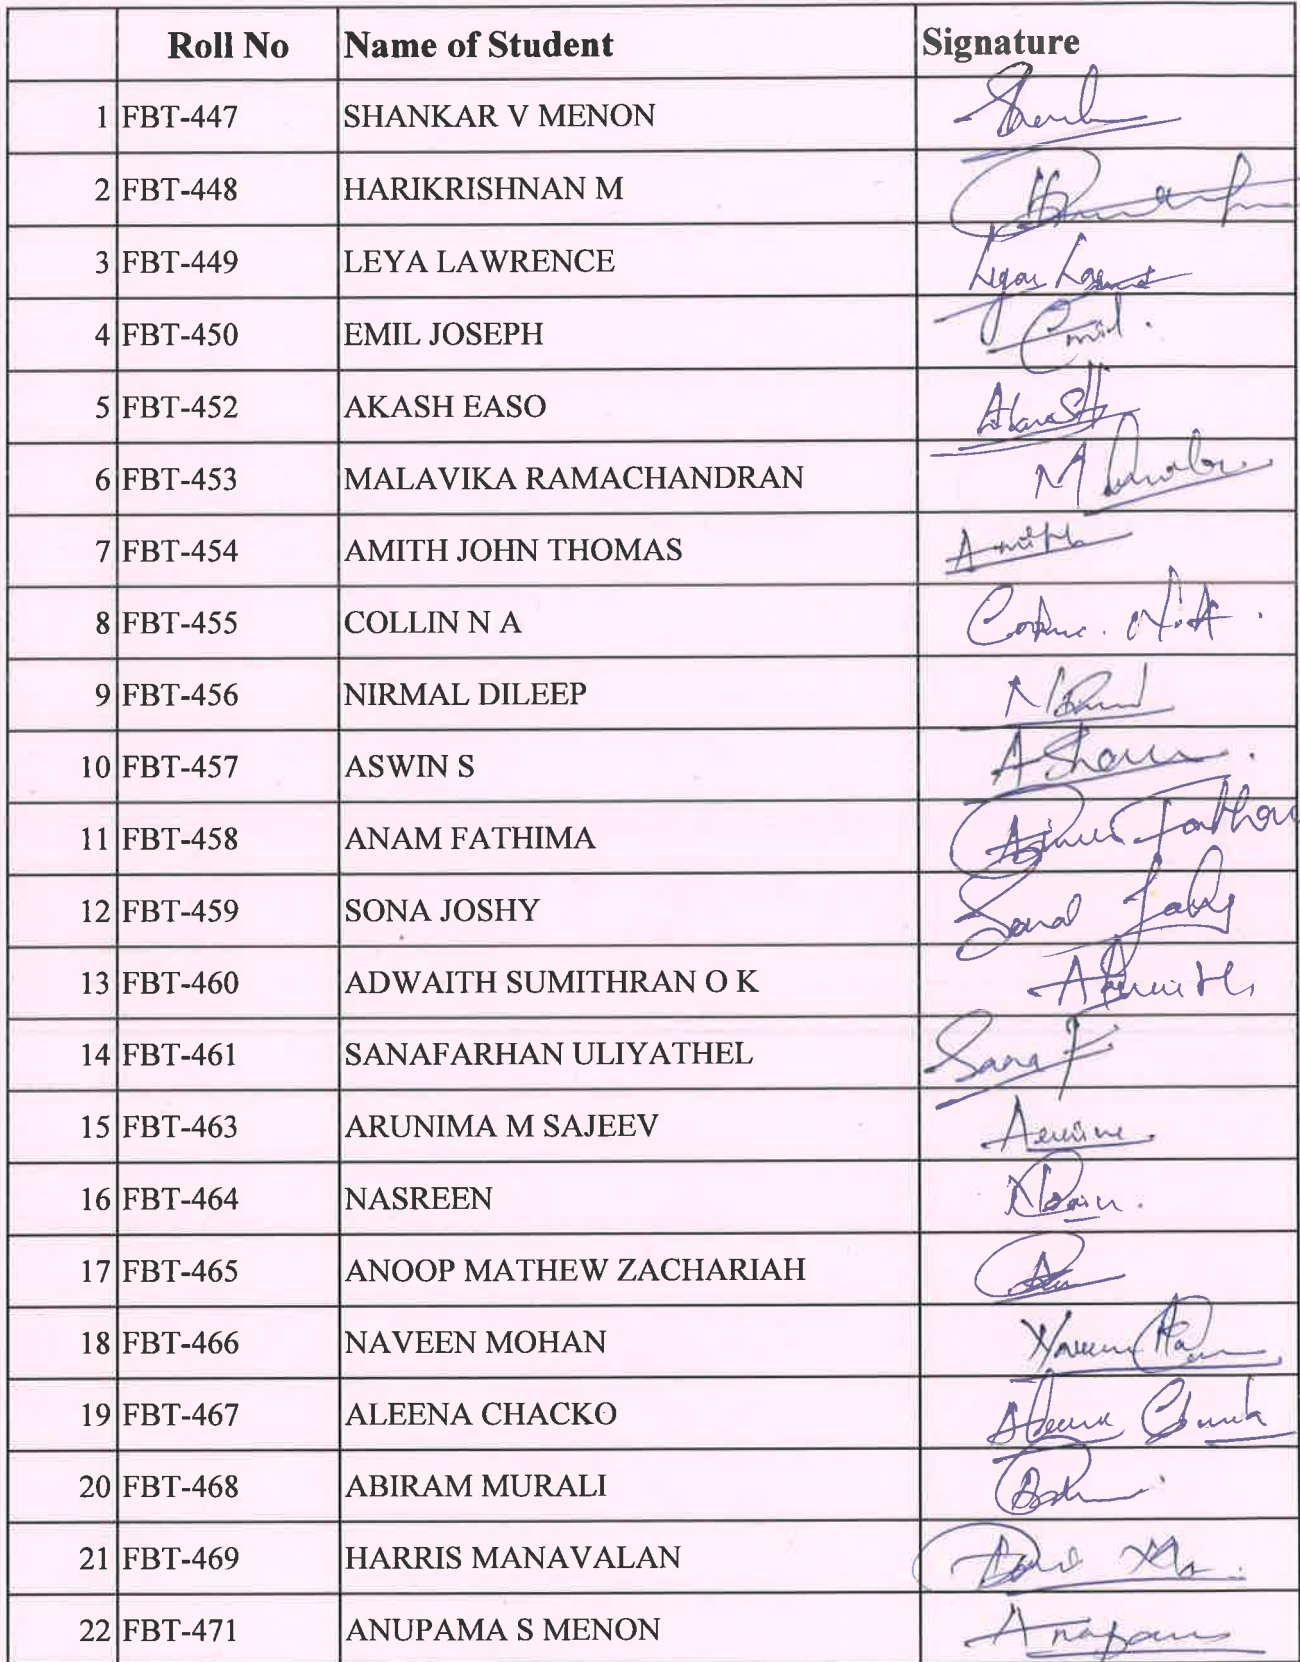 Roll No Name of Student Signature
1 FBT-447 SHANKAR V MENON
2 FBT-448 HARIKRISHNAN M
3 FBT-449 LEYA LAWRENCE
4 FBT-450 EMIL JOSEPH Emil.
5 FBT-452 AKASH EASO Akash
6 FBT-453 MALAVIKA RAMACHANDRAN
7 FBT-454 AMITH JOHN THOMAS Amith
8 FBT-455 COLLIN N A
9 FBT-456 NIRMAL DILEEP
10 FBT-457 ASWIN S
11 FBT-458 ANAM FATHIMA
12 FBT-459 SONA JOSHY
13 FBT-460 ADWAITH SUMITHRAN O K
14 FBT-461 SANAFARHAN ULIYATHEL Sana F
15 FBT-463 ARUNIMA M SAJEEV
16 FBT-464 NASREEN
17 FBT-465 ANOOP MATHEW ZACHARIAH
18 FBT-466 NAVEEN MOHAN
19 FBT-467 ALEENA CHACKO
20 FBT-468 ABIRAM MURALI
21 FBT-469 HARRIS MANAVALAN
22 FBT-471 ANUPAMA S MENON